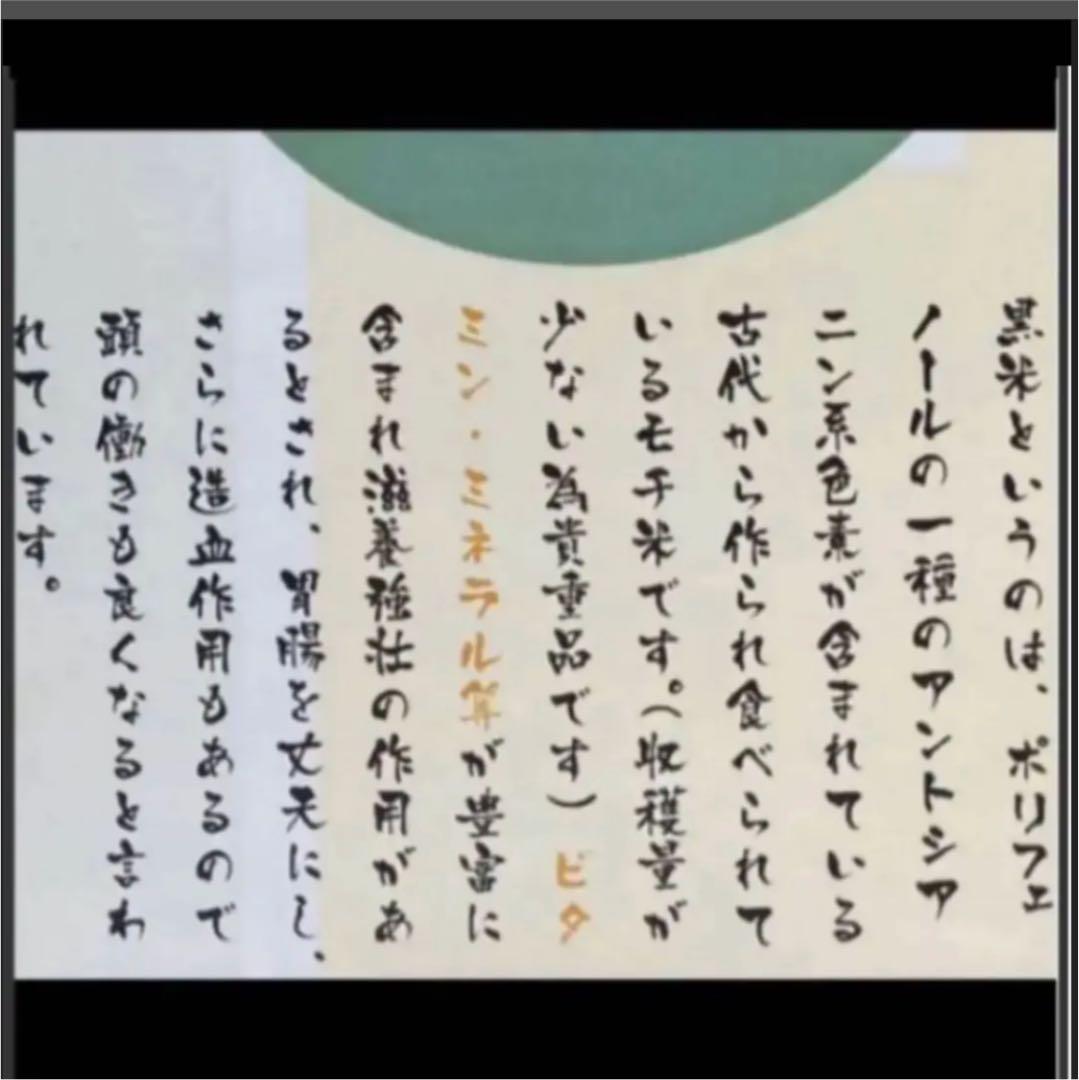 黒米というのは、ポリフェ
ノールの一種のアントシア
ニン系色素が含まれている
古代から作られ食べられて
いるモチ米です。(収穫量が
少ない為貴重品です) ビタ
ミン・ミネラル等が豊富に
含まれ滋養強壮の作用があ
るとされ、胃腸を丈夫にし、
さらに造血作用もあるので
頭の働きも良くなると言わ
れています。